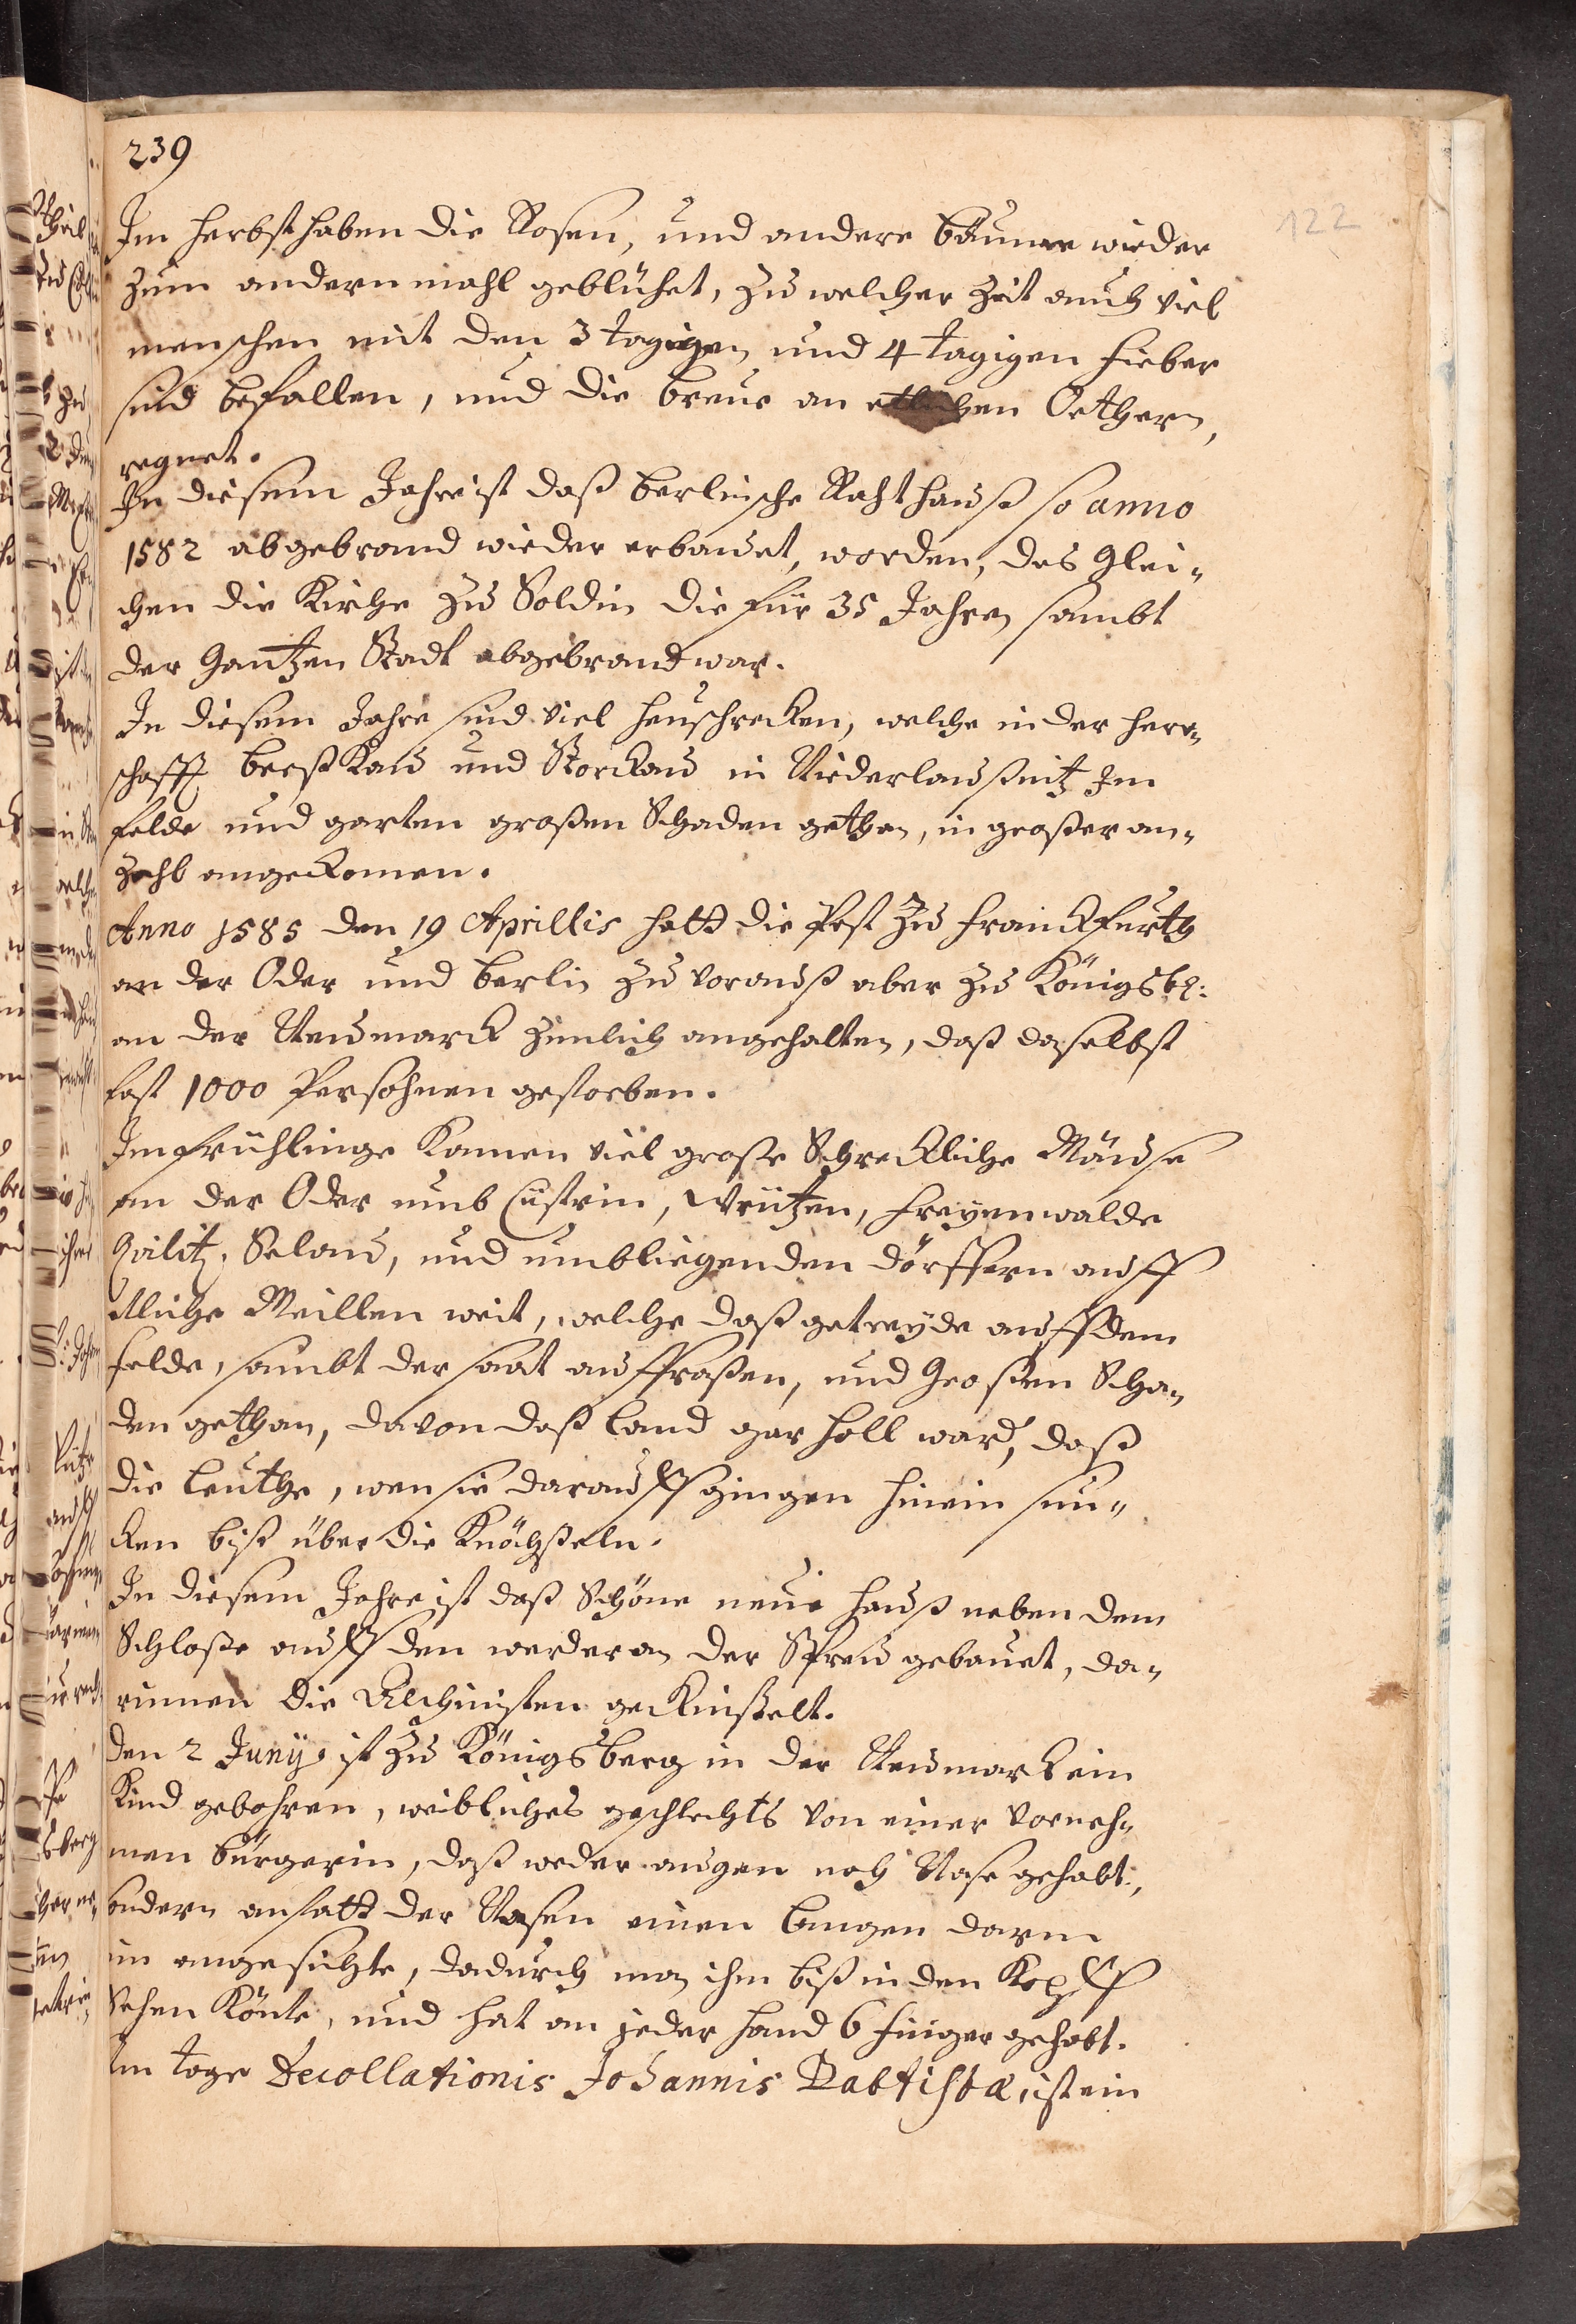 239
122
Im Herbst haben die Rosen, und andere bäume wieder
zum andern mahl geblühet, zu welcher Zeit auch viel
menschen mit den 3 tagigen und 4 tagigen Fieber
sind befallen, und die breue an etlichen Orthern,
regnet.
In diesem Jahre ist daß berlinsche Rahthauß so anno
1582 abgebrand wieder erbauet, worden, des Glei„
chen die Kirche zu Soldin die für 35 Jahren sambt
der Gantzen Stadt abgebrand war.
In diesem Jahre sind viel heuschrecken, welche in der herr„
schafft beeßkau und Storckau in Niederlaußnitz Im
felde und garten großen Schaden gethan, in großer an„
zahl angekomen.
Anno 1585 den 19 Aprillis hatt die Pest zu Franckfurth
an der Oder und berlin zuvorauß aber zu Königsb:
an der Neumarck zimlich angehalten, daß daselbst
fast 1000 Persohnen gestorben.
Im frühlinge kamen viel große Schreckliche Mäuse
an der Oder umb Cüstrin, Writzen, Freyenwalde
Qvilitz, Selow, und umbliegenden dörffern auff
etliche Meillen weit, welche daß getreyde auff dem
felde, sambt der saat auffraßen, und Großen Scha„
den gethan, davon daß land gar holl ward, daß
die leuthe, wen sie darauff gingen hinein sun„
cken biß über die Knöchßeln.
In diesem Jahre ist daß Schöne neue hauß neben dem
Schloße auff den werder an der Spreu gebauet, da„
rinnen die Alchimisten gekünßtelt.
den 2 Junij ist zu Königsberg in der Neumarck ein
Kind gebohren, weibliches geschlechts von einer vorneh„
men bürgerin, daß weder augen noch Nase gehabt,
sondern anstatt der Nasen einen langen darm
im angesichte, dadurch man ihm biß in den Kopff
Sehen könte, und hat an jeder hand 6 finger gehabt.
Am tage Decollationis Johannis Babtistæ, ist ein